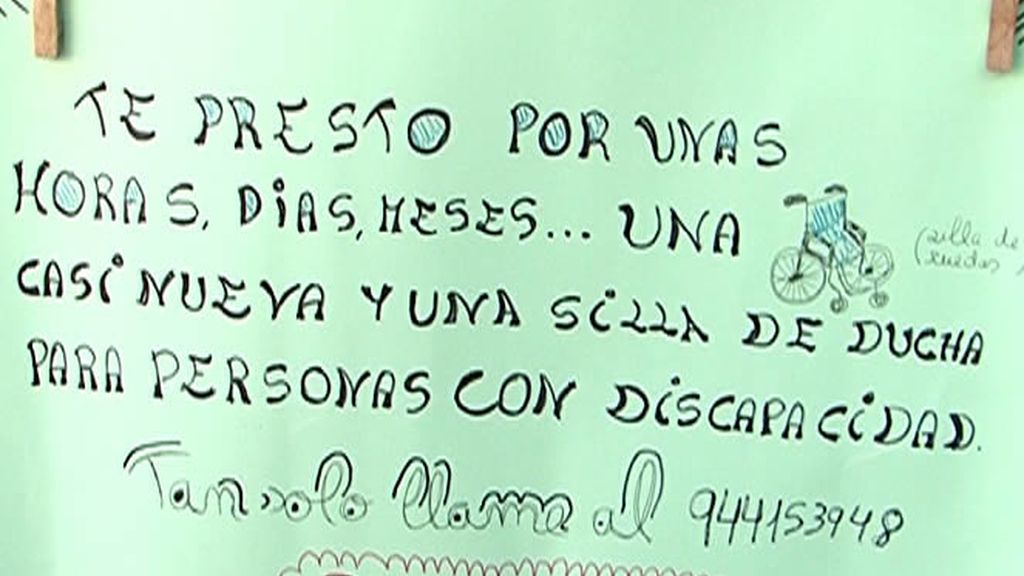 TE PRESTO POR UNAS
HORAS, DÍAS, MESES... UNA (silla de
ruedas)
CASI NUEVA Y UNA SILLA DE DUCHA
PARA PERSONAS CON DISCAPACIDAD.
Tan solo llama al 944153948